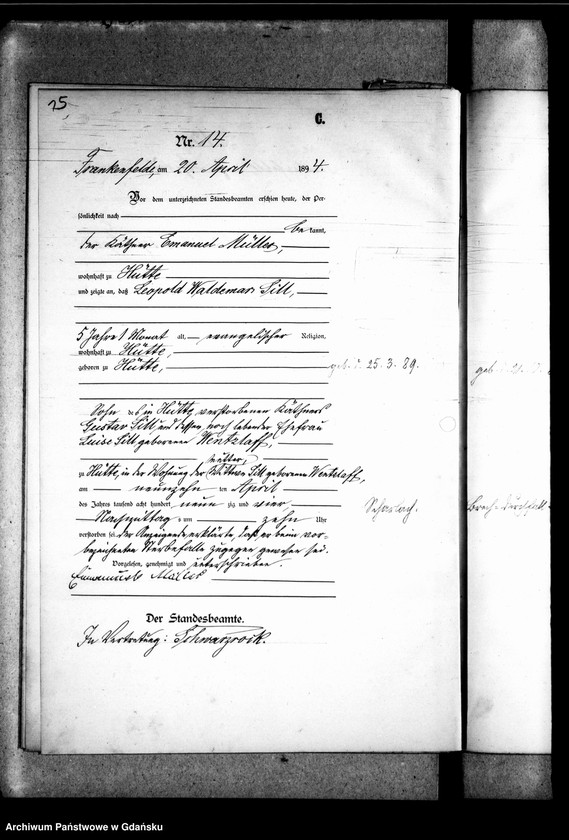 75,
C.
Nr. 14.
Frankenfelde, am 20. April 1894.
Vor dem unterzeichneten Standesbeamten erschien heute, der Per-
sönlichkeit nach
bekannt,
der Käthner Emanuel Müller,
wohnhaft zu Hütte
und zeigte an, daß Leopold Waldemar Sill,
5 Jahre 1 Monat alt, evangelischer Religion,
wohnhaft zu Hütte,
geboren zu Hütte,
geb. d. 25.3.89.
Sohn des in Hütte verstorbenen Käthners
Gustav Sill und dessen noch lebender Ehefrau
Luise Sill geborenen Wentzlaff,
Mutter,
zu Hütte, in der Wohnung der Wittwe Sill geborenen Wentzlaff,
am neunzehnten April
des Jahres tausend acht hundert neunzig und vier,
Scharlach.
Nachmittag um zehn Uhr
verstorben sei, der Anzeigende erklärte, daß er beim vor-
bezeichneten Sterbefalle zugegen gewesen sei.
Vorgelesen, genehmigt und unterschrieben.
Emanuel Müller
Der Standesbeamte.
In Vertretung: Schwarzrock.
Archiwum Państwowe w Gdańsku